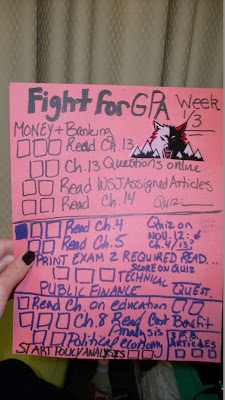 Fight for GPA Week 1/3
MONEY + Banking
Read Ch.13
Ch.13 Questions online
Read WSJ Assigned Articles
Read Ch.14 Quiz:
Read Ch.4 Quiz on
Read Ch.5 NOV.12:
Ch.4/13?
PRINT EXAM 2 REQUIRED READ..
SCORE ON QUIZ
TECHNICAL
PUBLIC FINANCE QUEST.
Read Ch. on education
Ch.8 Read Cost Benefit
Analysis
Political economy ARTICLES
START POLICY ANALYSIS